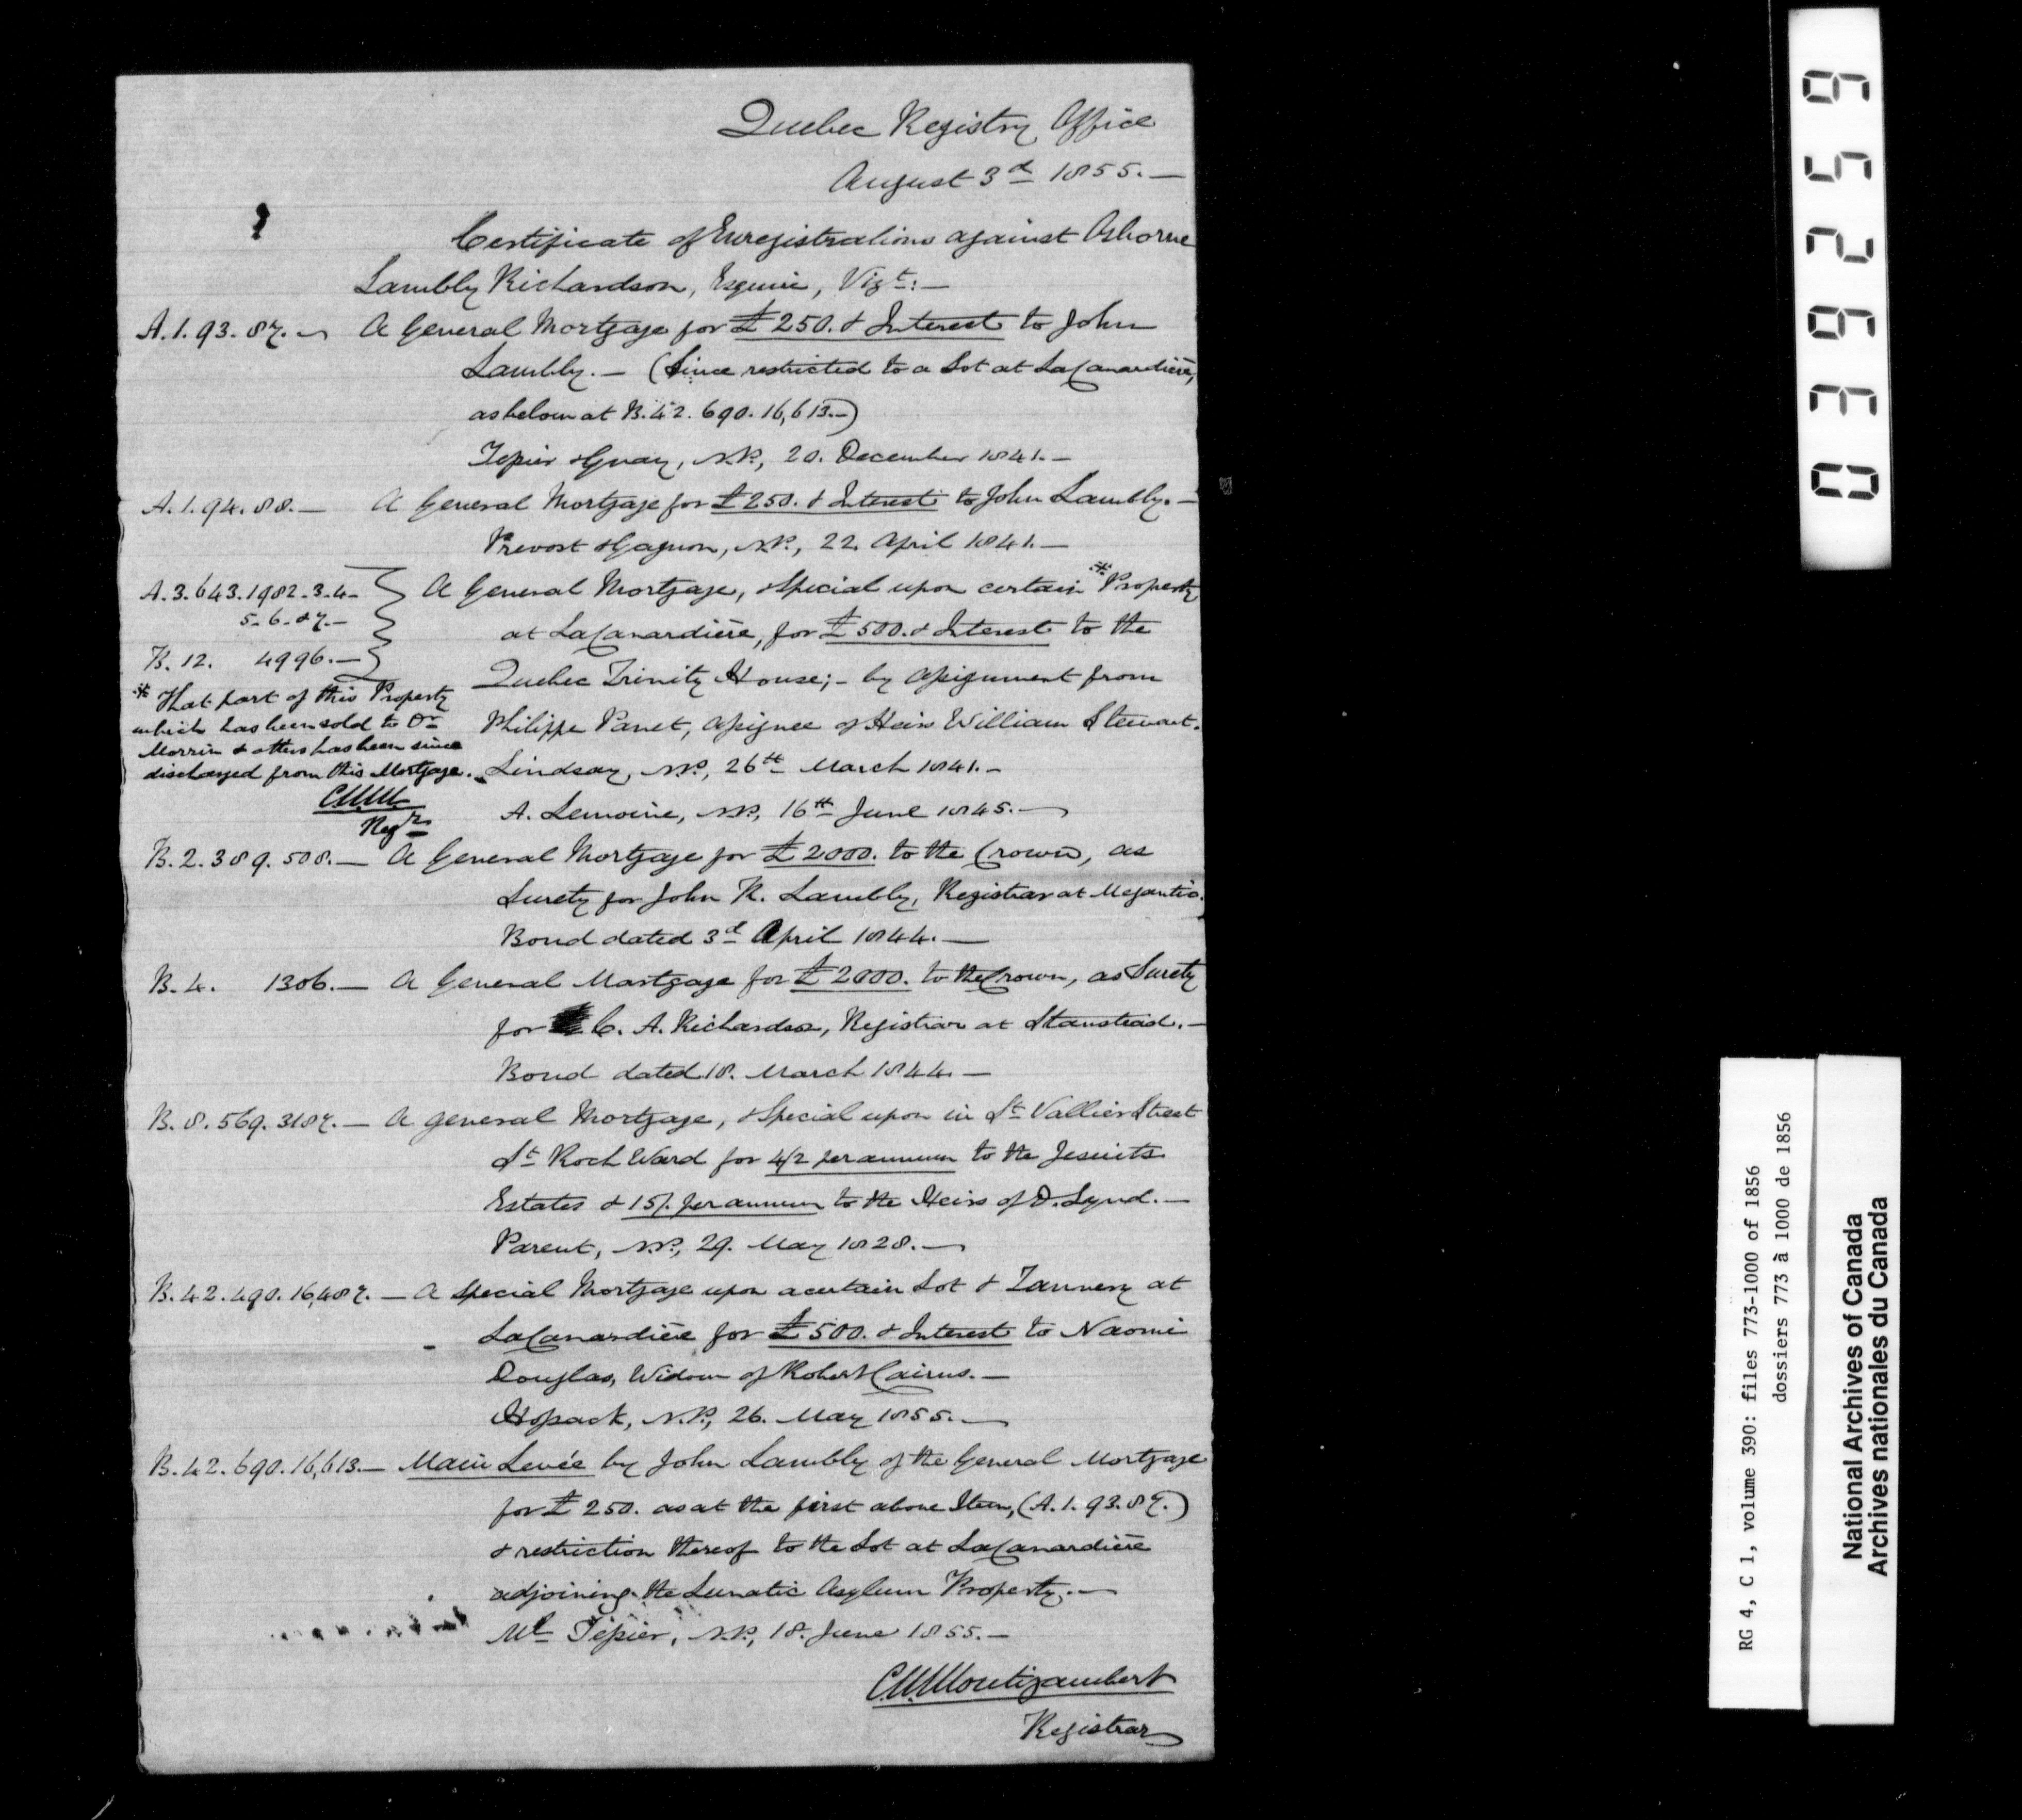 Quebec Registry Office
August 3d 1855.—
Certificate of Enregistrations against Osborne
Lambly Richardson, Esquire, Vizt:—
A.1.93.87.— A General Mortgage for £250. & Interest to John
Lambly.— (Since restricted to a Lot at LaCanardière,
as below at B.42.690.16,613.—)
Tessier & Guay, N.P., 20. December 1841.—
A.1.94.88.— A General Mortgage for £250. & Interest to John Lambly.—
Prevost & Gagnon, N.P., 22. April 1841.—
A.3.643.1982.3.4- A General Mortgage, & Special upon certain * Property
5-6-&7.— at LaCanardière, for £500. & Interest to the
B.12. 4996.— Quebec Trinity House;- by assignment from
* That part of this Property
which has been sold to Dr Philippe Panet, assignee of Heirs William Stewart.
Morrin & others has been since
discharged from this Mortgage.— Lindsay, N.P., 26th March 1841.—
CNM
Regr
A. Lemoine, N.P., 16th June 1845.—
B.2.389.508.— A General Mortgage for £2000. to the Crown, as
Surety for John R. Lambly, Registrar at Megantic.
Bond dated 3d April 1844.—
B.4. 1306.— A General Mortgage for £2000. to the Crown, as Surety
for C. A. Richardson, Registrar at Stanstead.—
Bond dated 18. March 1844.—
B.8.569.3187.— A general Mortgage, & Special upon in St Vallier Street
St Roch Ward for 4/2 per annum to the Jesuits
Estates & 15/. per annum to the Heirs of D. Lynd.—
Parent, N.P., 29. May 1828.—
B.42.490.16,487.— A special Mortgage upon a certain Lot & Tannery at
LaCanardière for £500. & Interest to Naomi
Douglas, Widow of Robert Cairns.—
Hossack, N.P., 26. May 1855.—
B.42.690.16,613.— Main Levée by John Lambly of the General Mortgage
for £250. as at the first above Item, (A.1.93.87.)
& restriction thereof to the Lot at LaCanardière
adjoining the Lunatic Asylum Property.—
Ml Tessier, N.P., 18. June 1855.—
CNMontizambert
Registrar
036259
RG 4, C 1, volume 390: files 773-1000 of 1856
dossiers 773 à 1000 de 1856
National Archives of Canada
Archives nationales du Canada